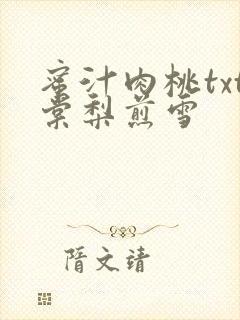 蜜汁肉桃txt
棠梨煎雪
隋文靖